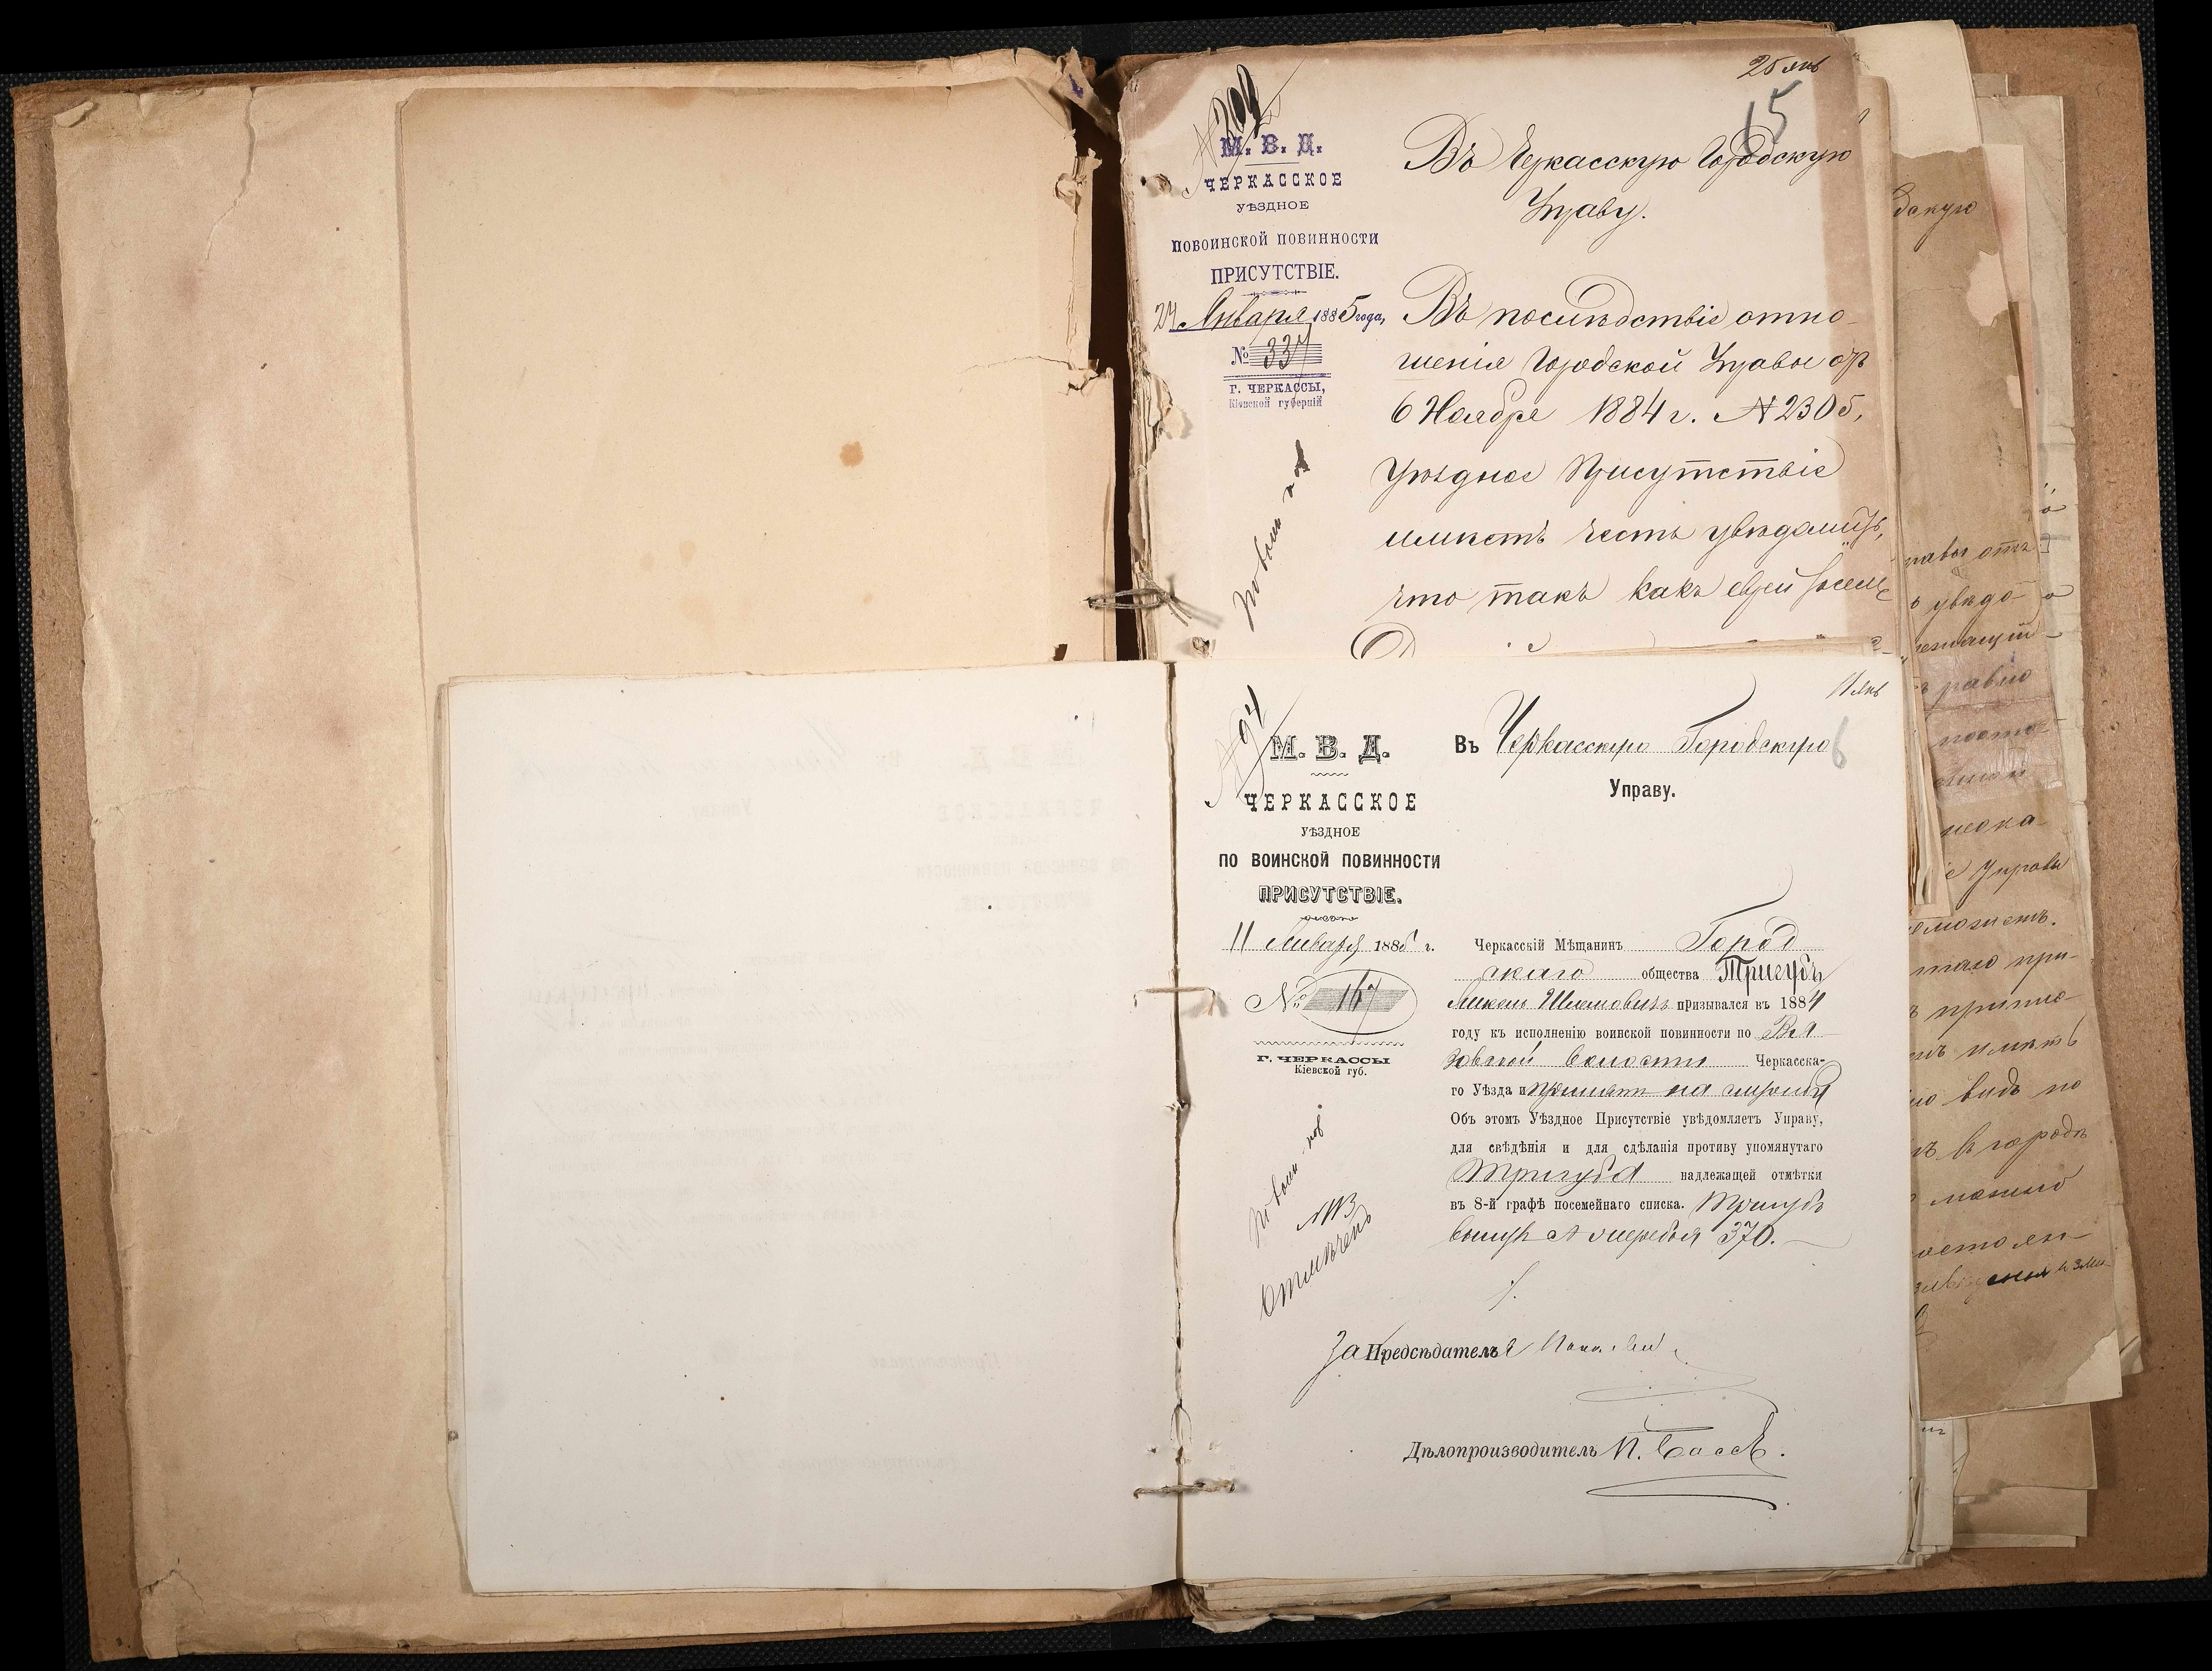 25 янв
15
№ 309
М. В. Д.
ЧЕРКАССКОЕ
УѢЗДНОЕ
ПОВОИНСКОЙ ПОВИННОСТИ
ПРИСУТСТВІЕ.
24 Января 1885 года,
№ 337
Г. ЧЕРКАССЫ,
Кіевской губерній
По воин пов
Въ Черкасскую Городскую
Управу.
Въ послѣдствіе отно-
шенія Городской Управы отъ
6 Ноября 1884 г. № 2305,
Уѣздное Присутствіе
имѣетъ честь увѣдомить,
что такъ какъ еврей
11 янв
6
№ 94
М. В. Д.
ЧЕРКАССКОЕ
УѢЗДНОЕ
ПО ВОИНСКОЙ ПОВИННОСТИ
ПРИСУТСТВІЕ.
11 Января 1885 г.
№ 167
Г. ЧЕРКАССЫ
Кіевской губ.
По воин пов
Отмѣченъ
Въ Черкасскую Городскую
Управу.
Черкасскій Мѣщанинъ Город
скаго общества Тригубъ
Шлемовичъ призывался въ 1884
году къ исполненію воинской повинности по Вя
зовской волости Черкасска-
го Уѣзда и принятъ на службу
Объ этомъ Уѣздное Присутствіе увѣдомляетъ Управу,
для свѣдѣнія и для сдѣланія противу упомянутаго
Тригуба надлежащей отмѣтки
въ 8-й графѣ посемейнаго списка. Тригубъ
вынулъ № жеребья 370.
За Предсѣдателя
Дѣлопроизводитель П.
дскую
равы отъ
увѣдо-
равно
Управы
можетъ.
при-
имѣть
видъ по
въ городѣ
можно